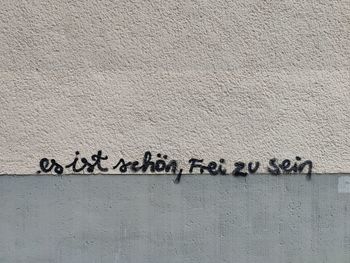 es ist schön, Frei zu sein